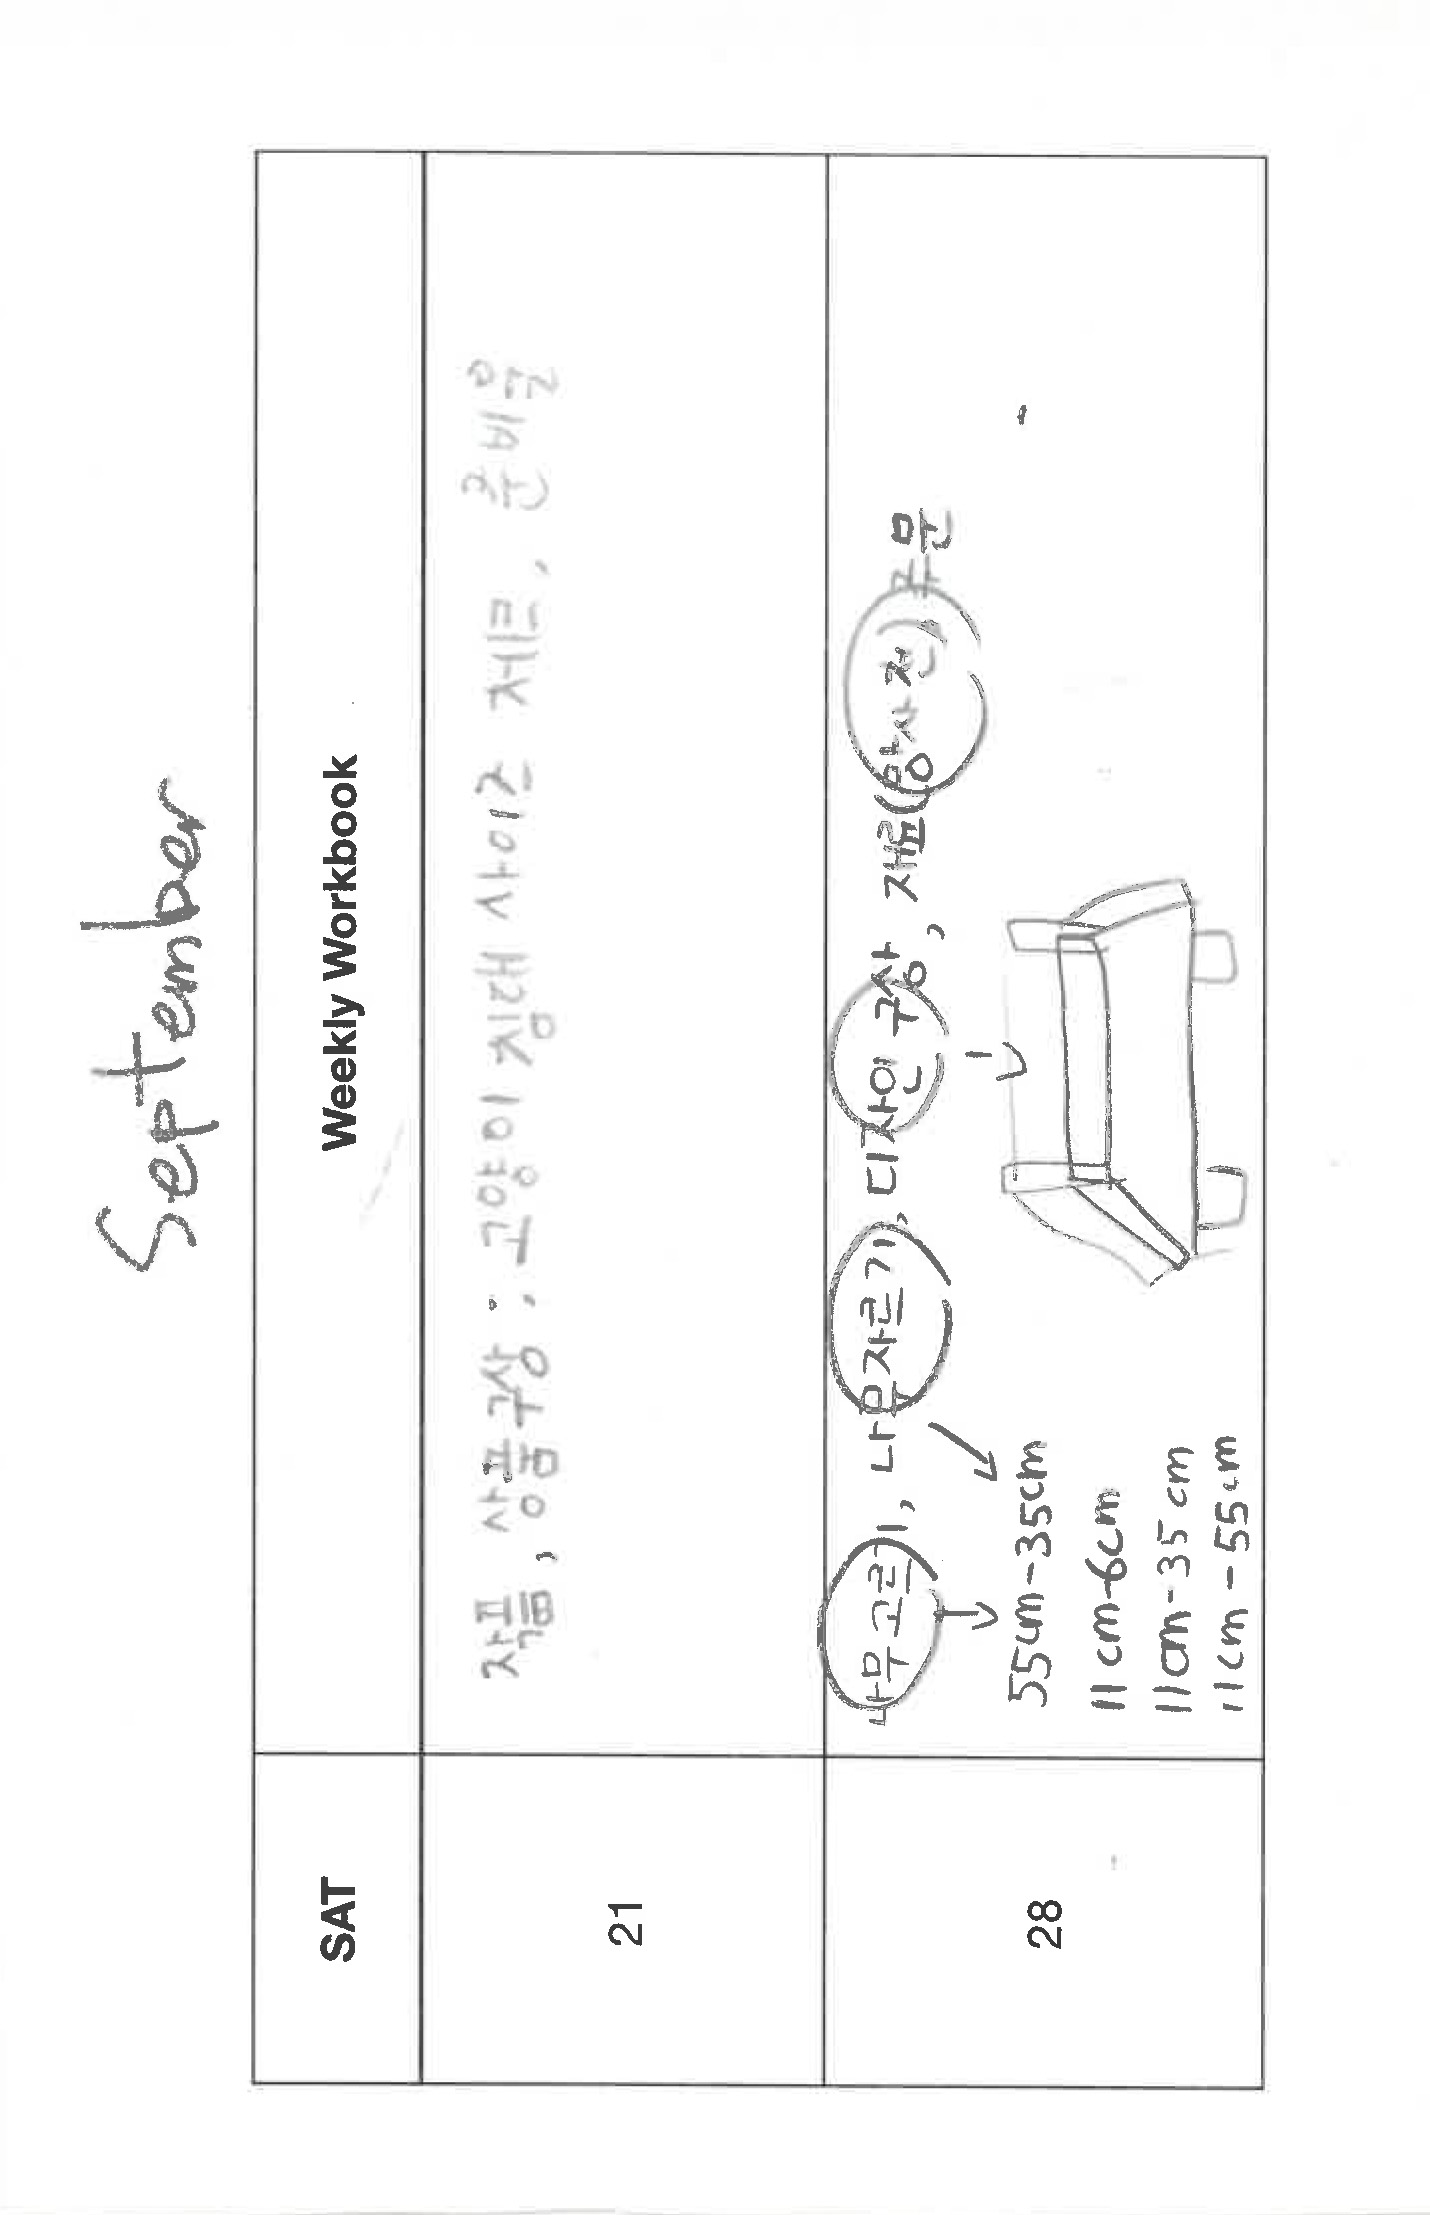 September
SAT
Weekly Workbook
21
작품, 상품구상 : 고양이 침대 사이즈 체크, 준비물
28
나무 고르기, 나무자르기, 디자인 구상, 재료(망사천) 주문
55cm-35cm
11cm-6cm
11cm-35cm
11cm-55cm